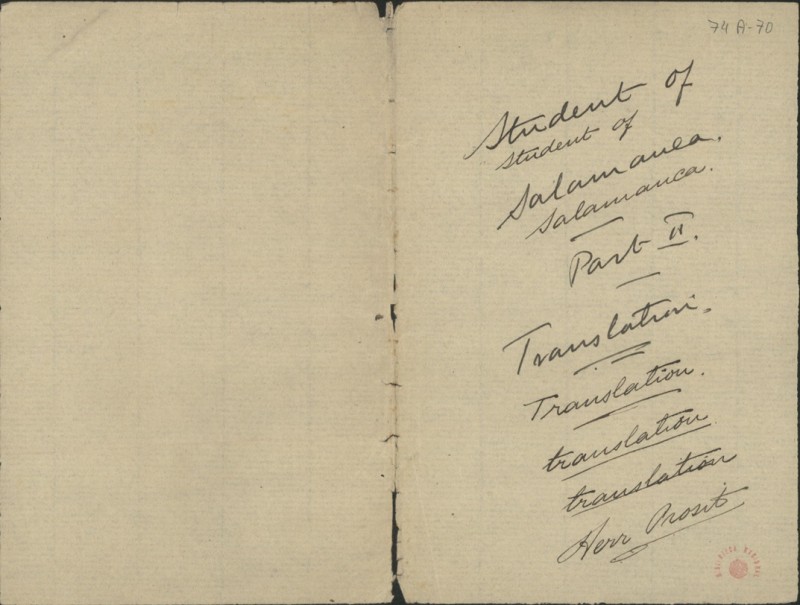 74 A-70
Student of
student of
Salamanca.
Salamanca.
Part II.
Translation.
Translation.
translation
translation
Herr Prosit
BIBLIOTECA NACIONAL